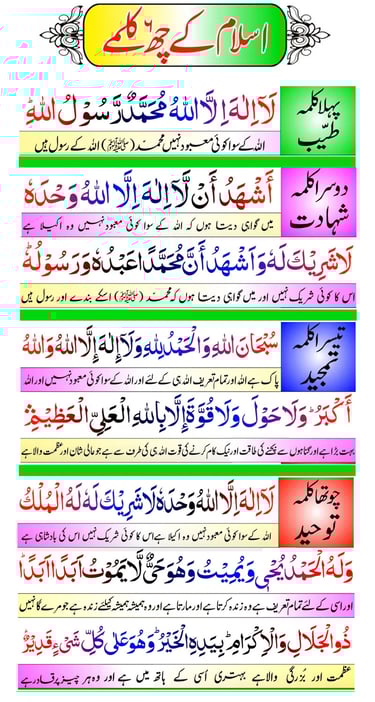 اسلام کے چھ ۶ کلمے
پہلا کلمہ طیّب
لَآ اِلٰهَ اِلَّا اللهُ مُحَمَّدٌ رَّسُوْلُ اللهِ
اللہ کے سوا کوئی معبود نہیں محمد (ﷺ) اللہ کے رسول ہیں
دوسرا کلمہ شہادت
أَشْهَدُ أَنْ لَّآ اِلٰهَ اِلَّا اللهُ وَحْدَهٗ
میں گواہی دیتا ہوں کہ اللہ کے سوا کوئی معبود نہیں وہ اکیلا ہے
لَا شَرِيْكَ لَهٗ وَ اَشْهَدُ أَنَّ مُحَمَّدًا عَبْدُهٗ وَ رَسُوْلُهٗ
اس کا کوئی شریک نہیں اور میں گواہی دیتا ہوں کہ محمد (ﷺ) اسکے بندے اور رسول ہیں
تیسرا کلمہ تمجید
سُبْحَانَ اللهِ وَ الْحَمْدُ لِلّٰهِ وَلَآ اِلٰهَ اِلَّا اللهُ وَ اللهُ
پاک ہے اللہ اور تمام تعریف اللہ ہی کے لئے اور اللہ کے سوا کوئی معبود نہیں اور اللہ
أَكْبَرُ وَلَا حَوْلَ وَلَا قُوَّةَ اِلَّا بِاللهِ الْعَلِىِّ الْعَظِيْمِ
بہت بڑا ہے اور گناہوں سے بچنے کی طاقت اور نیک کام کرنے کی قوت اللہ ہی کی طرف سے ہے جو عالی شان اور عظمت والا ہے
چوتھا کلمہ توحید
لَآ اِلٰهَ اِلَّا اللهُ وَحْدَهٗ لَا شَرِيْكَ لَهٗ لَهُ الْمُلْكُ
اللہ کے سوا کوئی معبود نہیں وہ اکیلا ہے اس کا کوئی شریک نہیں اس کی بادشاہی ہے
وَلَهُ الْحَمْدُ يُحْىٖ وَ يُمِيْتُ وَهُوَ حَىٌّ لَّا يَمُوْتُ اَبَدًا اَبَدًا
اور اسی کے لئے تمام تعریف ہے وہ زندہ کرتا ہے اور مارتا ہے اور وہ ہمیشہ ہمیشہ کیلئے زندہ ہے جو مرے گا نہیں
ذُو الْجَلَالِ وَ الْاِكْرَامِ بِيَدِهِ الْخَيْرُ وَهُوَ عَلٰى كُلِّ شَىْءٍ قَدِيْرٌ
عظمت اور بزرگی والا ہے بہتری اُسی کے ہاتھ میں ہے اور وہ ہر چیز پر قادر ہے